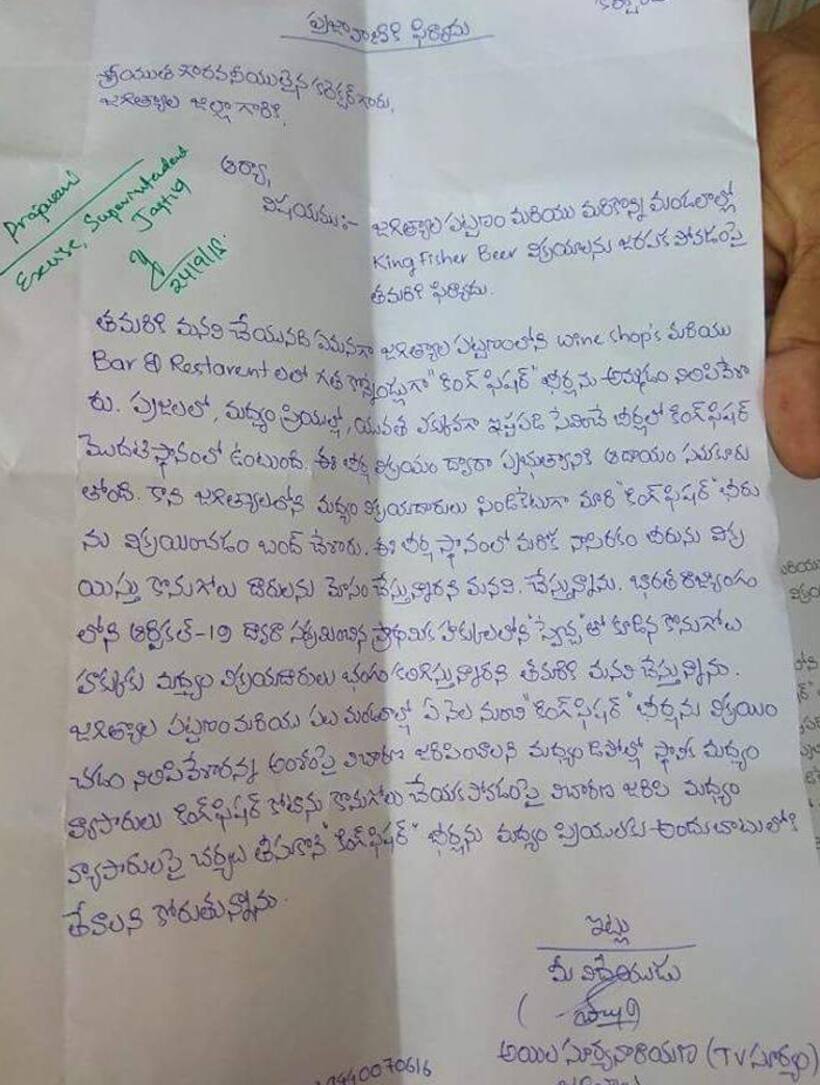 ప్రజావాణికి ఫిర్యాదు
శ్రీయుత గౌరవనీయులైన కలెక్టర్ గారు,
జగిత్యాల జిల్లా గారికి,
Prajavani
Excise, Superintendent
Jagtial
24/9/18
ఆర్యా,
విషయము:- జగిత్యాల పట్టణం మరియు మరికొన్ని మండలాల్లో
King Fisher Beer విక్రయాలను జరపక పోవడంపై
తమరికి ఫిర్యాదు.
తమరికి మనవి చేయునది ఏమనగా జగిత్యాల పట్టణంలోని wine shop's మరియు
Bar & Restarent లలో గత కొన్నేండ్లుగా "కింగ్ ఫిషర్" బీర్లను అమ్మడం నిలిపివేశా
రు. ప్రజలలో, మద్యం ప్రియుల్లో, యువత ఎక్కువగా ఇష్టపడి సేవించే బీర్లలో కింగ్ ఫిషర్
మొదటిస్థానంలో ఉంటుంది. ఈ బీర్ల విక్రయం ద్వారా ప్రభుత్వానికి ఆదాయం సమకూరు
తోంది. కాని జగిత్యాలలోని మద్యం విక్రయదారులు సిండికేటుగా మారి "కింగ్ ఫిషర్" బీరు
ను విక్రయించడం బంద్ చేశారు. ఈ బీర్ల స్థానంలో మరిక నాసిరకం బీరును విక్ర
యిస్తు కొనుగోలు దారులను మోసం చేస్తున్నారని మనవి చేస్తున్నాను. భారత రాజ్యాంగం
లోని ఆర్టికల్-19 ద్వారా సక్రమించిన ప్రాథమిక హక్కులలోని "స్వేచ్ఛ"తో కూడిన కొనుగోలు
హక్కుకు మద్యం విక్రయదారులు భంగం కలిగిస్తున్నారని తమరికి మనవి చేస్తున్నాను.
జగిత్యాల పట్టణం మరియు పలు మండలాల్లో ఏ నెల నుంచి "కింగ్ ఫిషర్" బీర్లను విక్రయిం
చడం నిలిపివేశారన్న అంశంపై విచారణ జరిపించాలని మద్యం డిపోల్లో స్థానిక మద్యం
వ్యాపారులు కింగ్ ఫిషర్ కోటాను కొనుగోలు చేయకపోవడంపై విచారణ జరిపి మద్యం
వ్యాపారులపై చర్యలు తీసుకొని "కింగ్ ఫిషర్" బీర్లను మద్యం ప్రియులకు అందుబాటులోకి
తేవాలని కోరుతున్నాను.
ఇట్లు
మీ విధేయుడు
అయిల సూర్యనారాయణ (TV సూర్యం)
9440070616